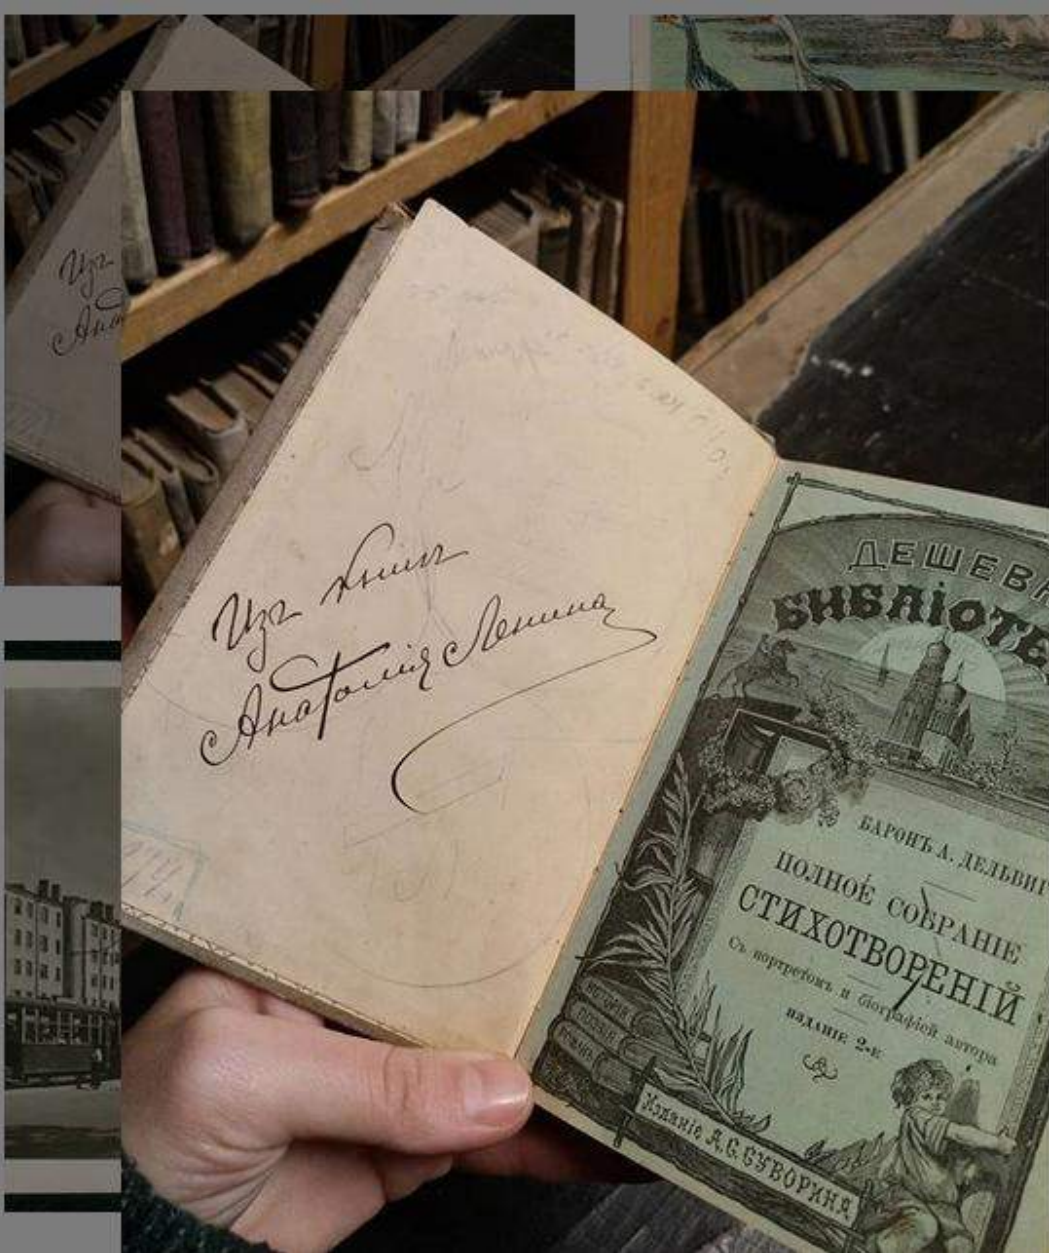 Изъ книгъ
Анатолія Ленина
ДЕШЕВА
БИБЛІОТЕ
БАРОНЪ А. ДЕЛЬВИГ
ПОЛНОЕ СОБРАНІЕ
СТИХОТВОРЕНІЙ
Съ портретомъ и біографіей автора
изданіе 2-е
ИСТОРІЯ
Изданіе А.С. СУВОРИНА